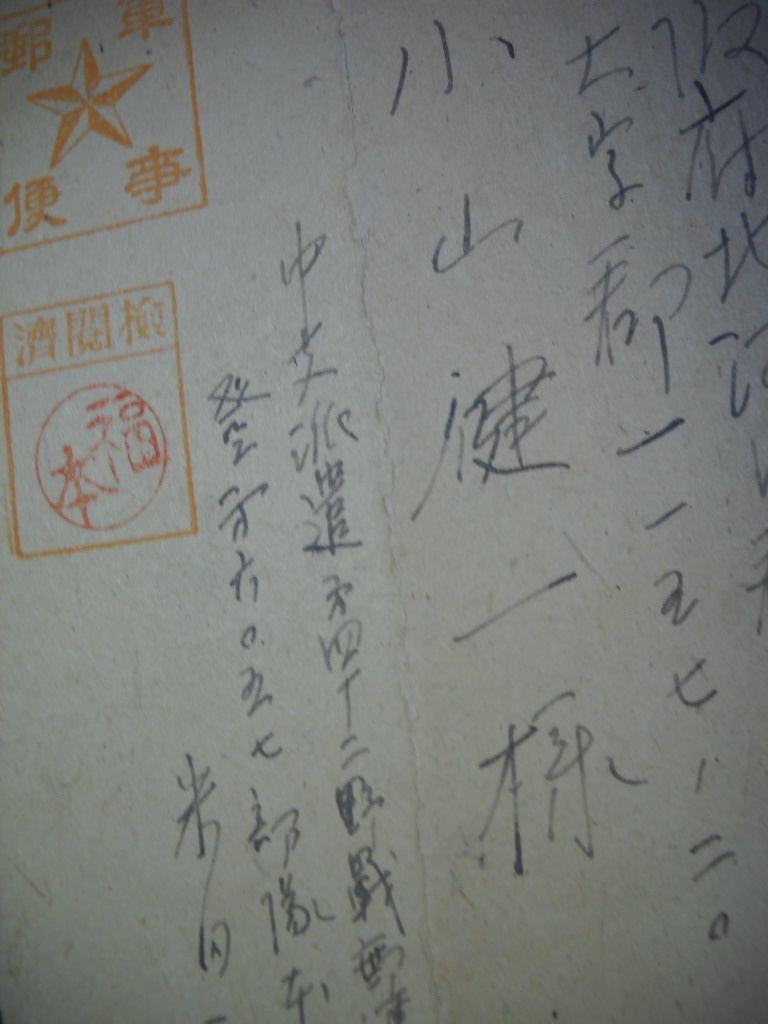 阪府北河
大字郡一一五七ノ二〇
小山健一様
中支派遣第四十二野戰郵便
登第六〇五七部隊本
米
軍事郵便
檢閲濟
福本